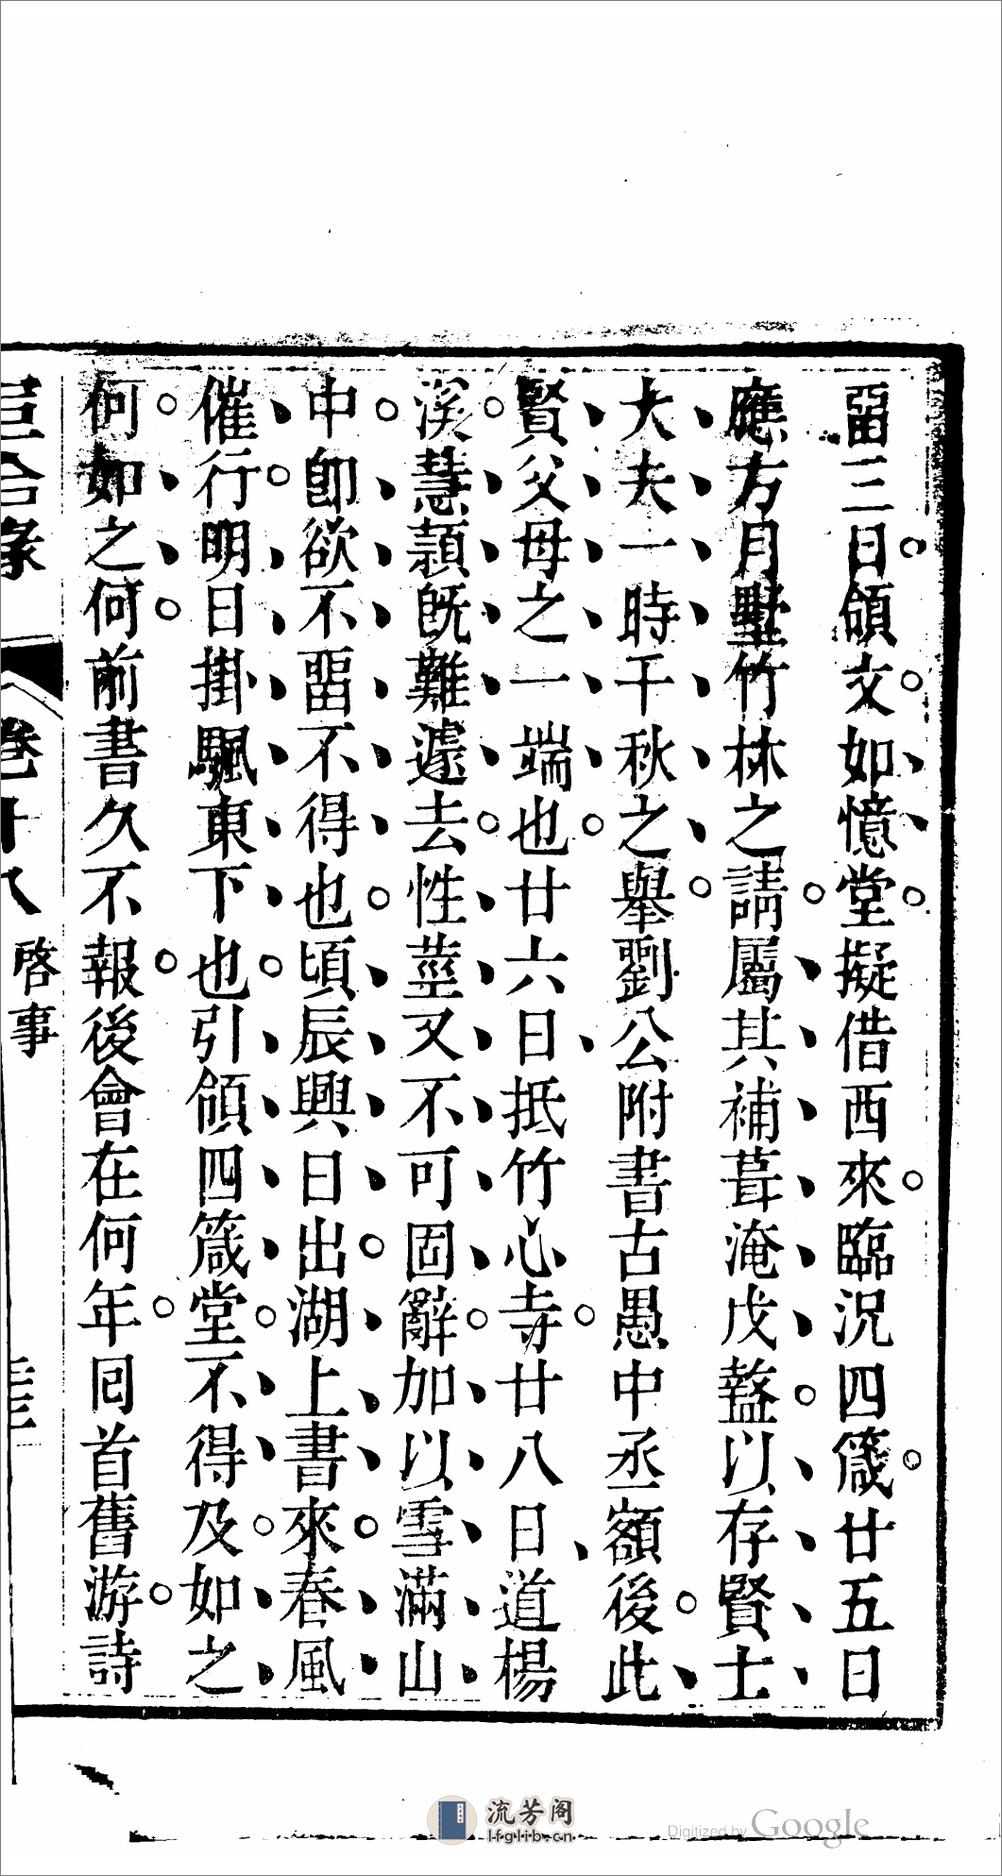 畱三日領文如憶堂擬借西來臨況四箴廿五日
應方月墅竹林之請屬其補葺淹戊盩以存賢士
大夫一時千秋之舉劉公附書古愚中丞額後此
賢父母之一端也廿六日抵竹心寺廿八日道楊
溪慧顛旣難遽去性莖又不可固辭加以雪滿山
中卽欲不畱不得也頃辰興日出湖上書來春風
催行明日掛颿東下也引領四箴堂不得及如之
何如之何前書久不報後會在何年囘首舊游詩
卷十八
啓事
流芳阁
lfglib.cn
Digitized by Google